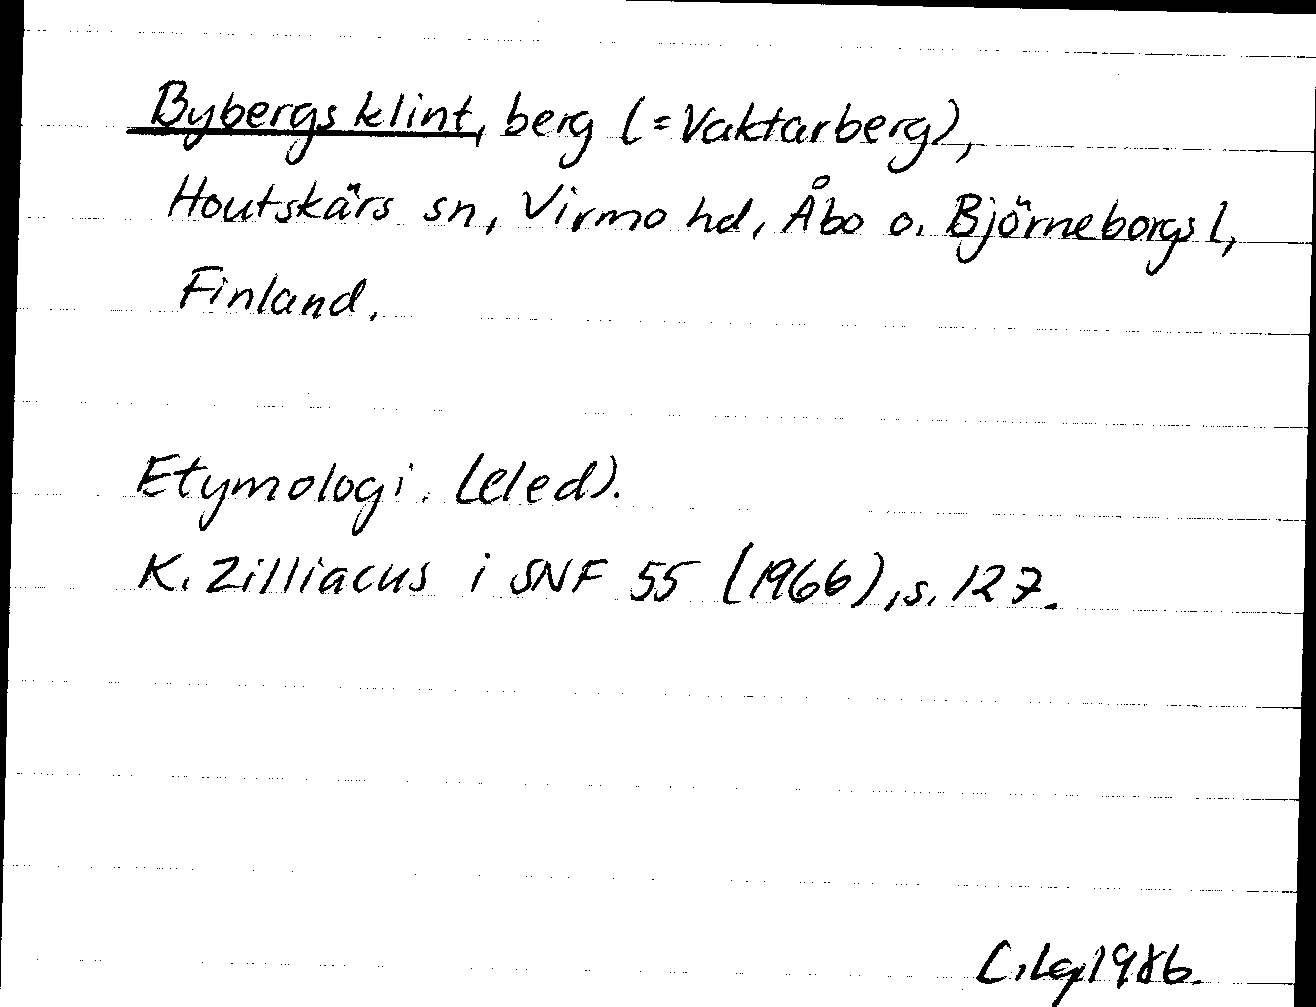 Bybergsklint, berg (=Vaktarberg),
Houtskärs sn, Virmo hd, Åbo o. Björneborgs l,
Finland.
Etymologi. (eled).
K. Zilliacus i SNF 55 (1966), s. 127.
1986.